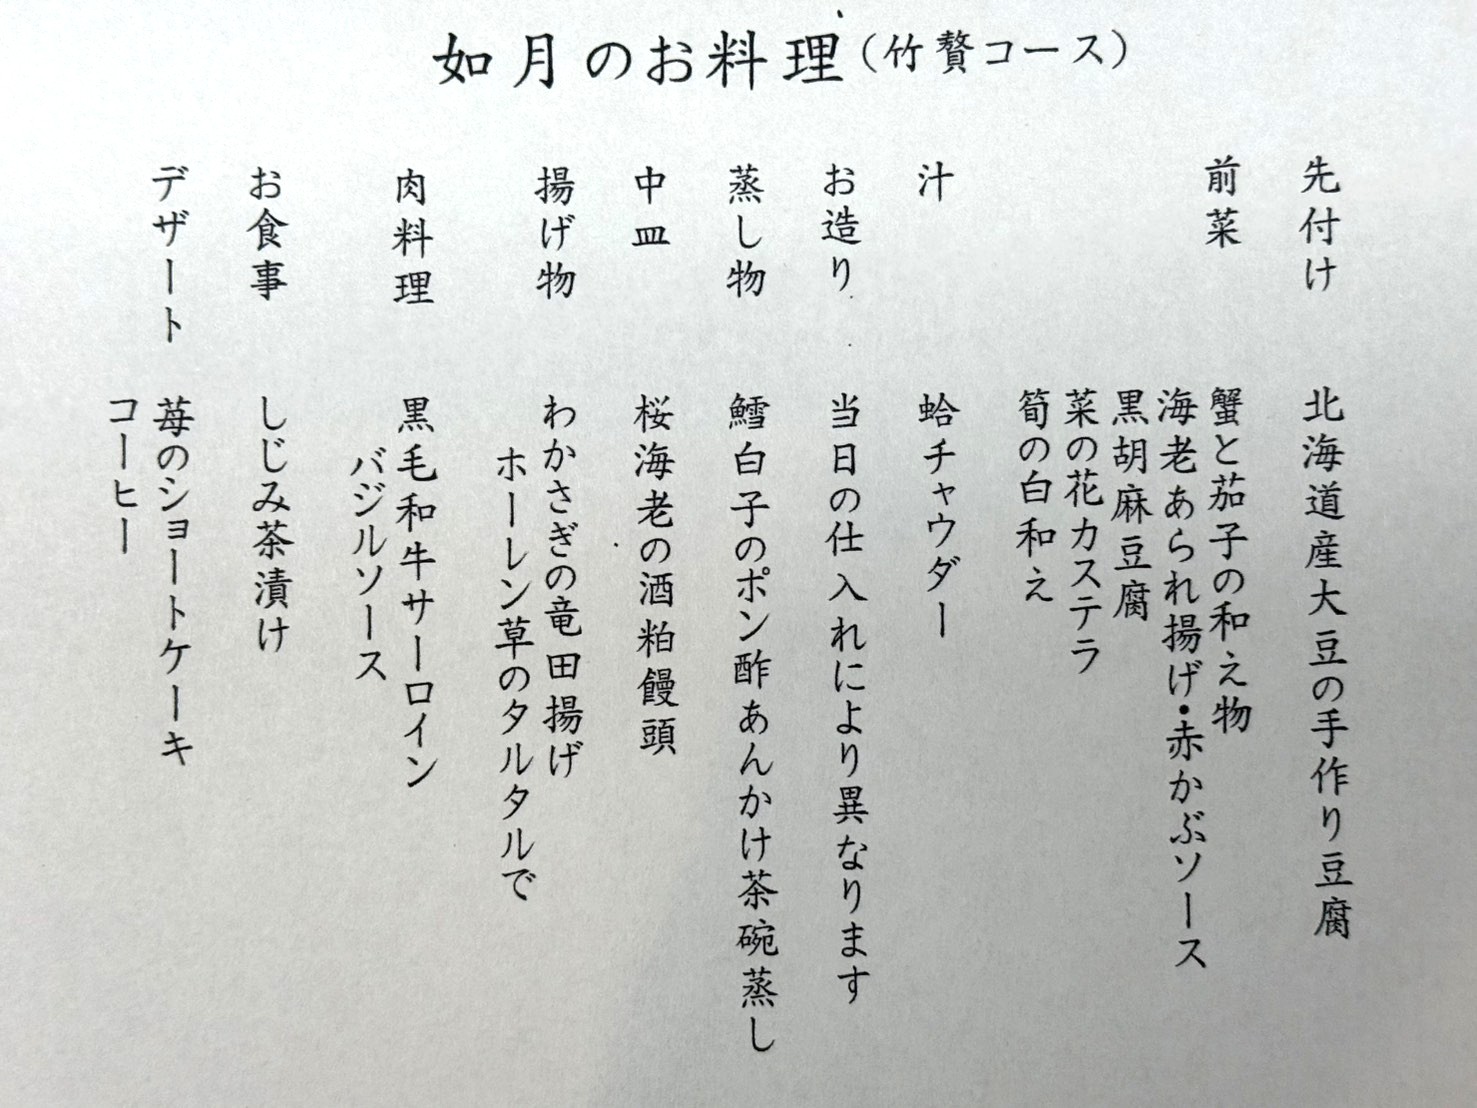 如月のお料理（竹贅コース）
先付け　北海道産大豆の手作り豆腐
前菜　蟹と茄子の和え物
海老あられ揚げ・赤かぶソース
黒胡麻豆腐
菜の花カステラ
筍の白和え
汁　蛤チャウダー
お造り　当日の仕入れにより異なります
蒸し物　鱈白子のポン酢あんかけ茶碗蒸し
中皿　桜海老の酒粕饅頭
揚げ物　わかさぎの竜田揚げ
ホーレン草のタルタルで
肉料理　黒毛和牛サーロイン
バジルソース
お食事　しじみ茶漬け
デザート　苺のショートケーキ
コーヒー